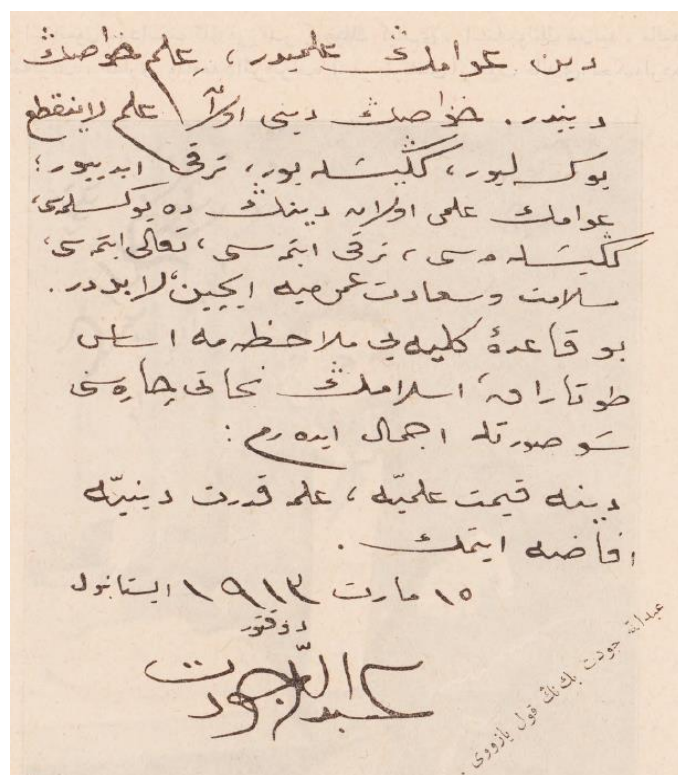 دين عوامك علميدر، علم خواصك
دينيدر. خواصك دينى اولان علم لاينقطع
يوكسليور، گنيشله يور، ترقى ايدييور؛
عوامك علمى اولان دينك ده يوكسلمسى،
گنيشله مه سى، ترقى ايتمه سى، تعالى ايتمه سى،
سلامت و سعادت عموميه ايچين لابددر.
بو قاعدهٔ كليه يى ملاحظه مه اساس
طوتارق، اسلامك نجاتى چاره سنى
شو صورتله اجمال ايده رم:
دينه قيمت علميّه، علمه قدرت دينيّه
افاضه ايتمك.
١٥ مارت ١٩١٣ ايستانبول
دوقتور
عبدالله جودت
عبدالله جودت بك نڭ قول يازووى.